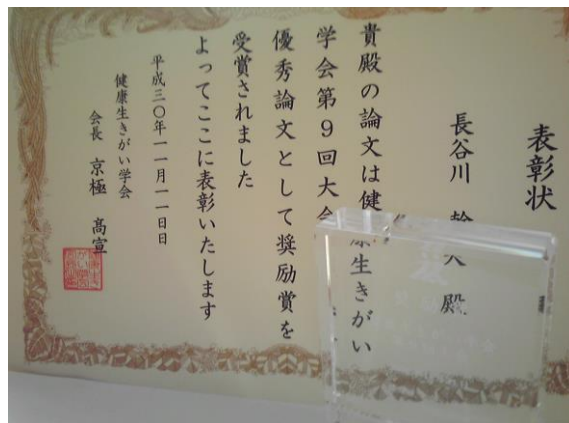 表彰状
長谷川 殿
貴殿の論文は健康生きがい
学会第9回大会
優秀論文として奨励賞を
受賞されました
よってここに表彰いたします
平成三〇年一一月一一日日
健康生きがい学会
会長 京極 高宣